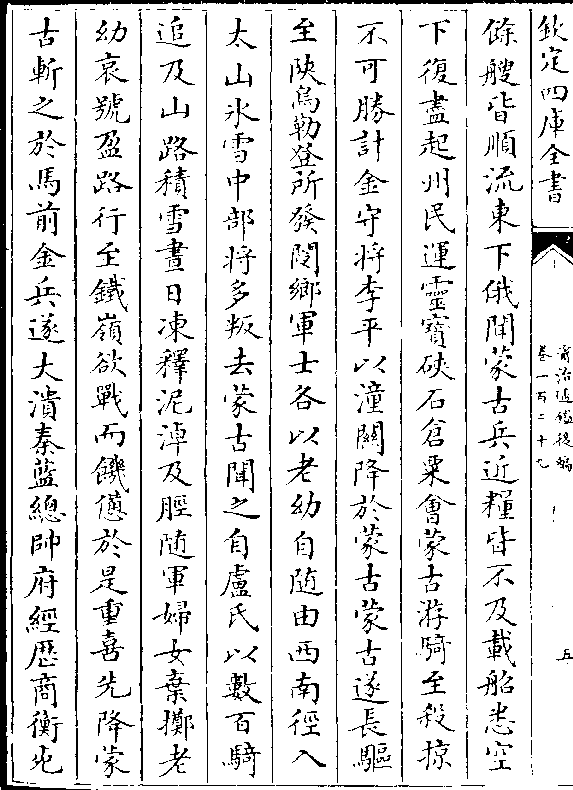 欽定四庫全書
資治通鑑後編
卷一百二十九
五
餘艘皆順流東下俄聞蒙古兵近糧皆不及載船悉空
下復盡起州民運靈寶硤石倉粟會蒙古游騎至殺掠
不可勝計金守將李平以潼關降於蒙古蒙古遂長驅
至陜烏勒登所發閿鄉軍士各以老幼自随由西南徑入
太山氷雪中部將多叛去蒙古聞之自盧氏以數百騎
追及山路積雪晝日凍釋泥淖及脛随軍婦女棄擲老
幼哀號盈路行至鐵嶺欲戰而饑憊於是重喜先降蒙
古斬之於馬前金兵遂大潰秦藍總帥府經歴商衡死